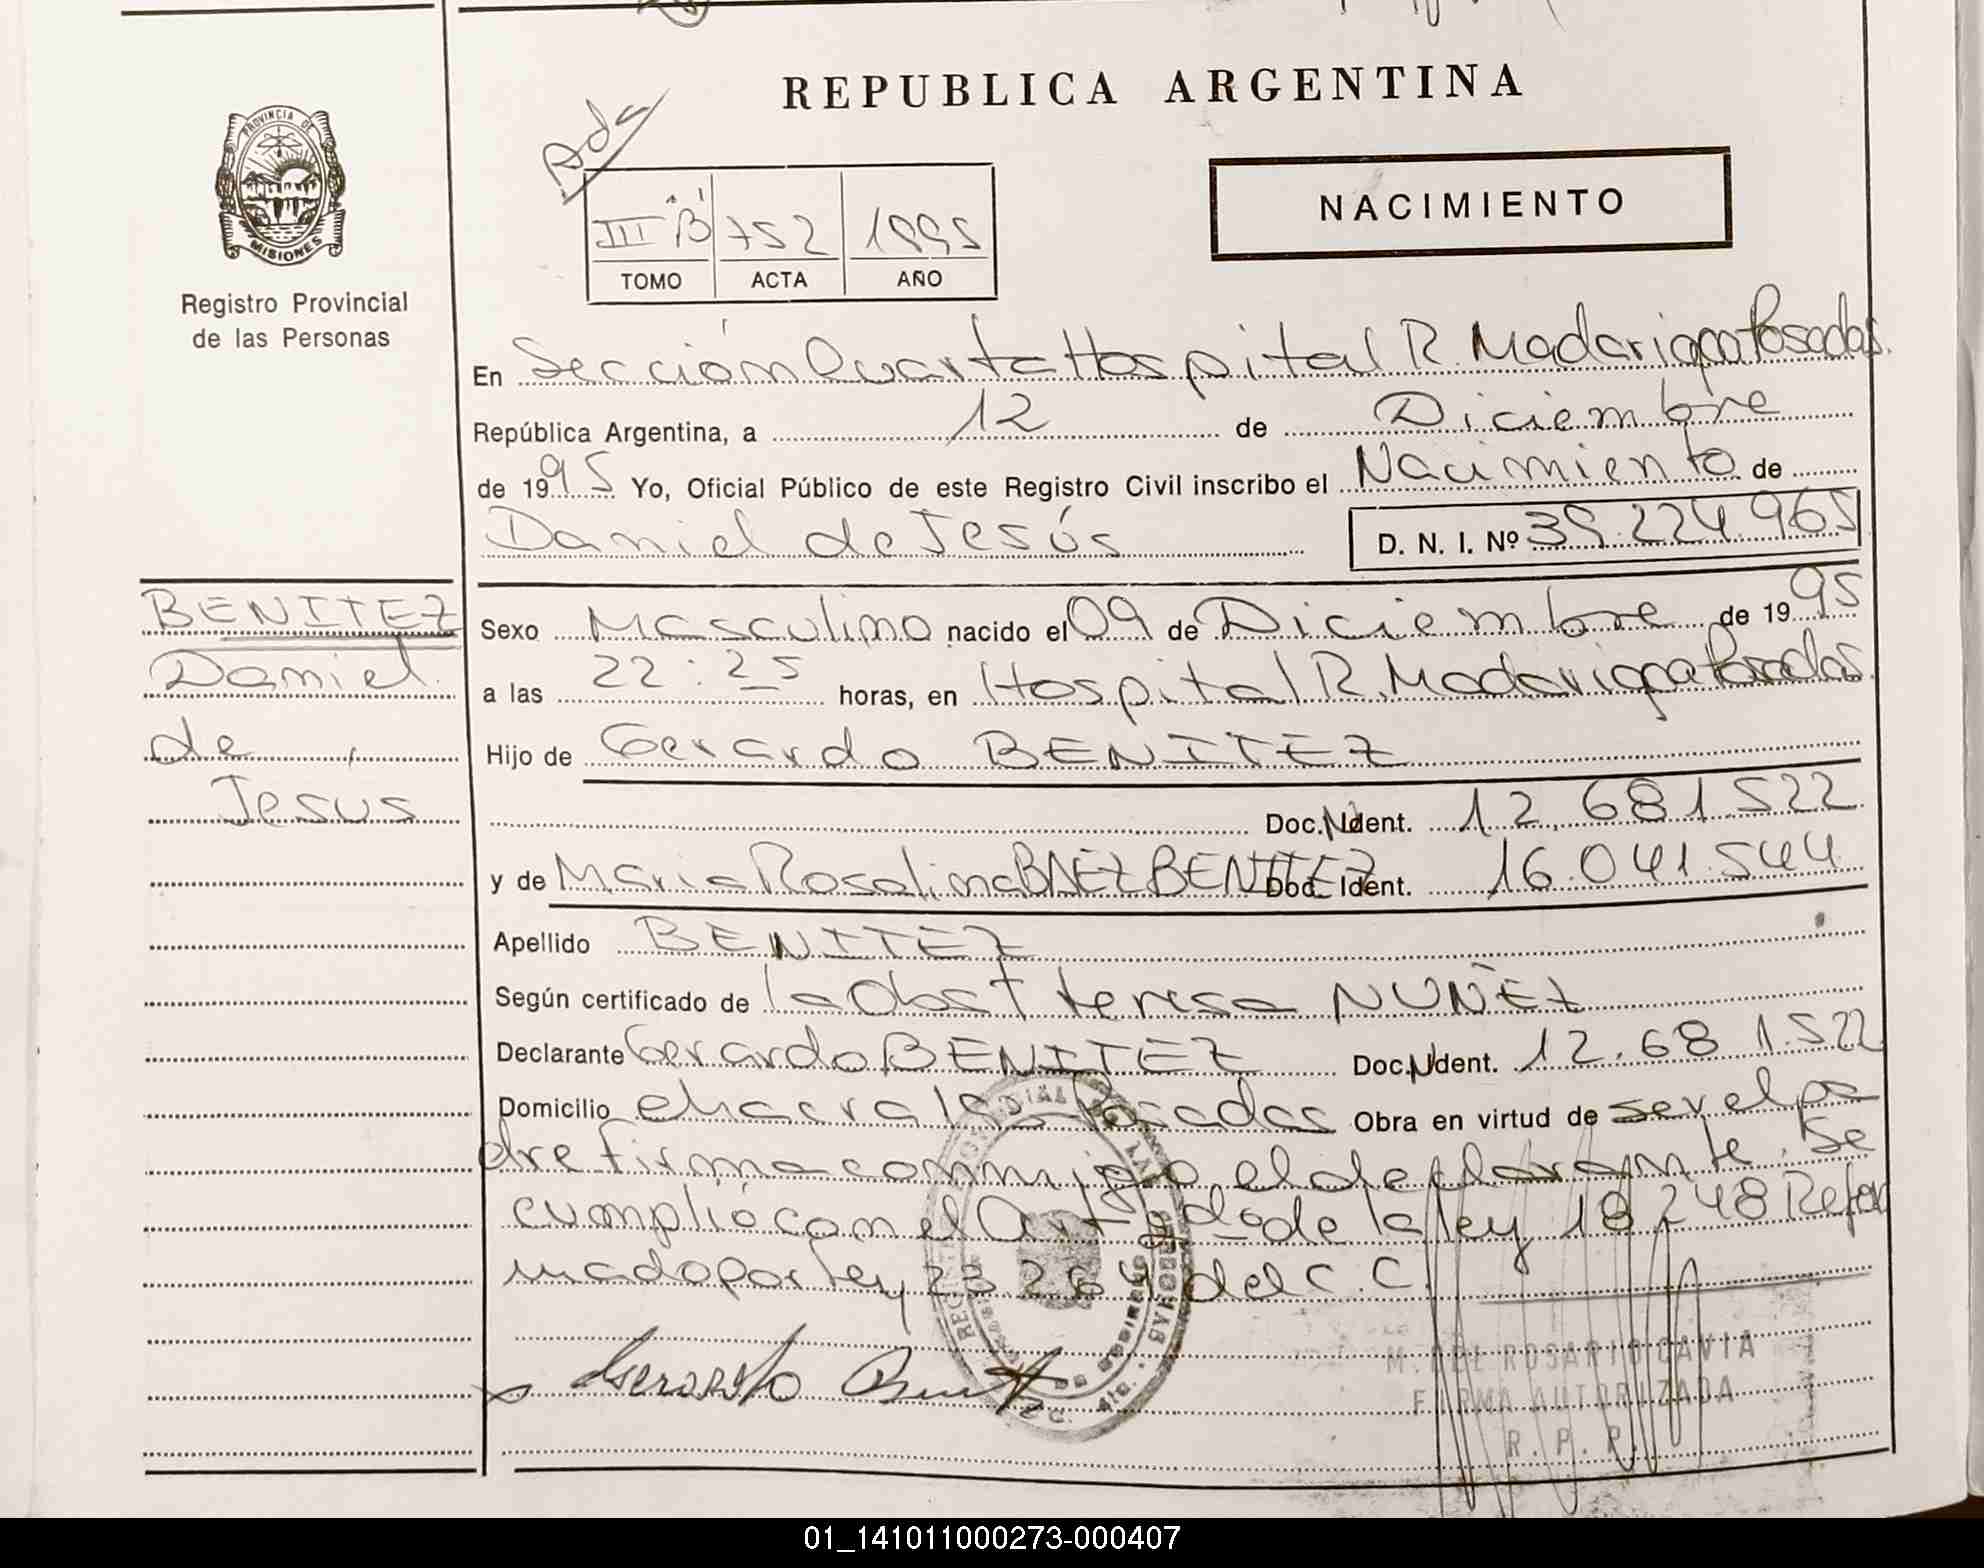 REPUBLICA ARGENTINA
Ada
PROVINCIA DE
MISIONES
Registro Provincial
de las Personas
III "B" 752 1995
TOMO ACTA AÑO
NACIMIENTO
En Sección Cuarta Hospital R. Madariaga Posadas.
República Argentina, a 12 de Diciembre
de 1995 Yo, Oficial Público de este Registro Civil inscribo el Nacimiento de
Daniel de Jesús D. N. I. Nº 39.224.965
BENITEZ
Daniel
de
Jesús
Sexo Masculino nacido el 09 de Diciembre de 1995
a las 22:25 horas, en Hospital R. Madariaga Posadas.
Hijo de Gerardo BENITEZ
Doc. N Ident. 12.681.522
y de Maria Rosalina BAEZ BENITEZ Doc. Ident. 16.041.544
Apellido BENITEZ
Según certificado de la Obst Teresa NUÑEZ
Declarante Gerardo BENITEZ Doc. N Ident. 12.681.522
Domicilio chacra Posadas Obra en virtud de ser el pa
dre firma conmigo el declarante. Se
cumplió con el Art. de la ley 18.248 Refor
mado por ley 23.264 del C.C.
Gerardo Benitez
M. DEL ROSARIO GAVIA
FIRMA AUTORIZADA
R. P. P.
01_141011000273-000407